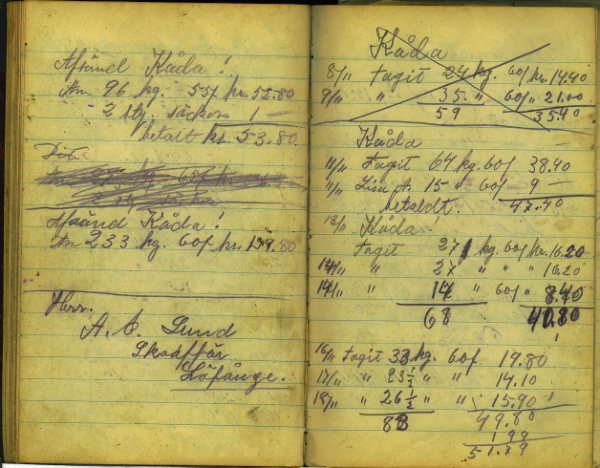 Afsänd Kåda!
96 kg. 55f kr. 52.80
2 stj. säckar 1 —
betalt kr. 53.80
Afsänd Kåda!
233 kg. 60f kr. 139.80
Herr.
A. C. Lund
Skoaffär
Löfånge.
Kåda
8/11 tagit 24 kg. 60f kr. 14.40
9/11 " 35. " 60f " 21.00
59 35.40
Kåda
11/11 Tagit 64 kg. 60f 38.40
11/11 Lisa A. 15 " 60f 9 —
betaldt. 47.40
13/11 Kåda
Tagit 27 kg. 60f kr. 16.20
14/11 " 27 " " " 16.20
14/11 " 14 " 60f " 8.40
68 40.80
16/11 Tagit 33 kg. 60f 19.80
17/11 " 23½ " " 14.10
18/11 " 26½ " " 15.90
83 49.80
1.99
51.79